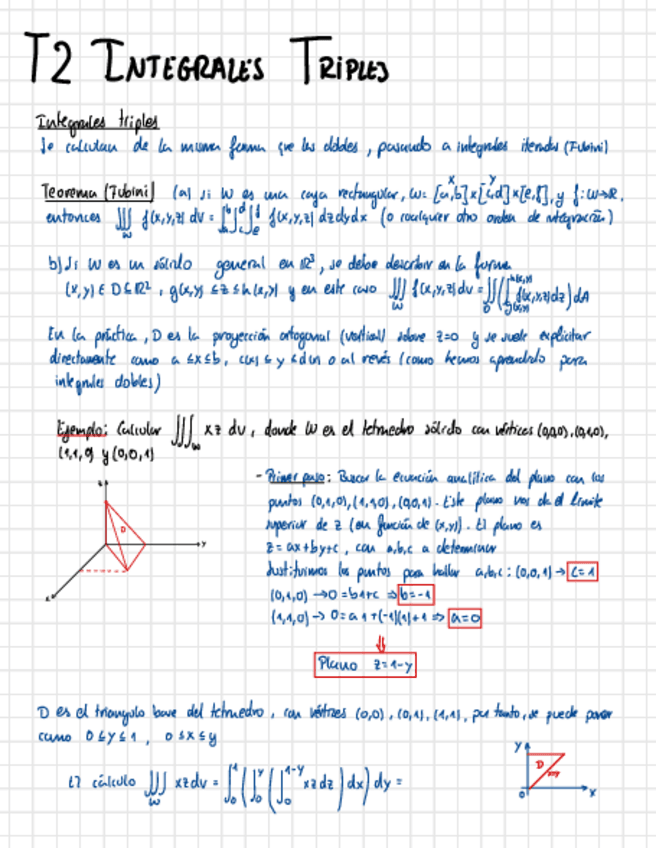 T2 INTEGRALES TRIPLES
Integrales triples
Se calculan de la misma forma que las dobles, pasando a integrales iteradas (Fubini)
Teorema (Fubini) (a) si W es una caja rectangular, W= [a,b]x[c,d]x[e,f], y f:W→R,
x y
entonces ∭_W f(x,y,z) dV = ∫_a^b∫_c^d∫_e^f f(x,y,z) dzdydx (o cualquier otro orden de integración)
b) Si W es un sólido general en R³, se debe describir en la forma
(x,y) ∈ D⊆R², g(x,y) ≤z≤h(x,y) y en este caso ∭_W f(x,y,z)dV = ∬_D(∫_{g(x,y)}^{h(x,y)} f(x,y,z)dz)dA
En la práctica, D es la proyección ortogonal (vertical) sobre z=0 y se suele explicitar
directamente como a ≤x≤b, c(x)≤ y ≤d(x) o al revés (como hemos aprendido para
integrales dobles)
Ejemplo: Calcular ∭_W xz dv, donde W es el tetraedro sólido con vértices (0,0,0), (0,1,0),
(1,1,0) y (0,0,1)
z
D
y
x
- Primer paso: Buscar la ecuación analítica del plano con los
puntos (0,1,0), (1,1,0), (0,0,1). Este plano nos da el límite
superior de z (en función de (x,y)). El plano es
z= ax+by+c, con a,b,c a determinar
Sustituimos los puntos para hallar a,b,c: (0,0,1) → c=1
(0,1,0) → 0= b1+c ⇒ b=-1
(1,1,0) → 0= a1+(-1)(1)+1 ⇒ a=0
⇓
Plano z=1-y
D es el triangulo base del tetraedro, con vértices (0,0), (0,1), (1,1), por tanto, se puede poner
como 0≤y≤1, 0≤x≤y
cálculo ∭_W xzdv = ∫_0^1(∫_0^y(∫_0^{1-y} xzdz)dx)dy =
y
D
0
x